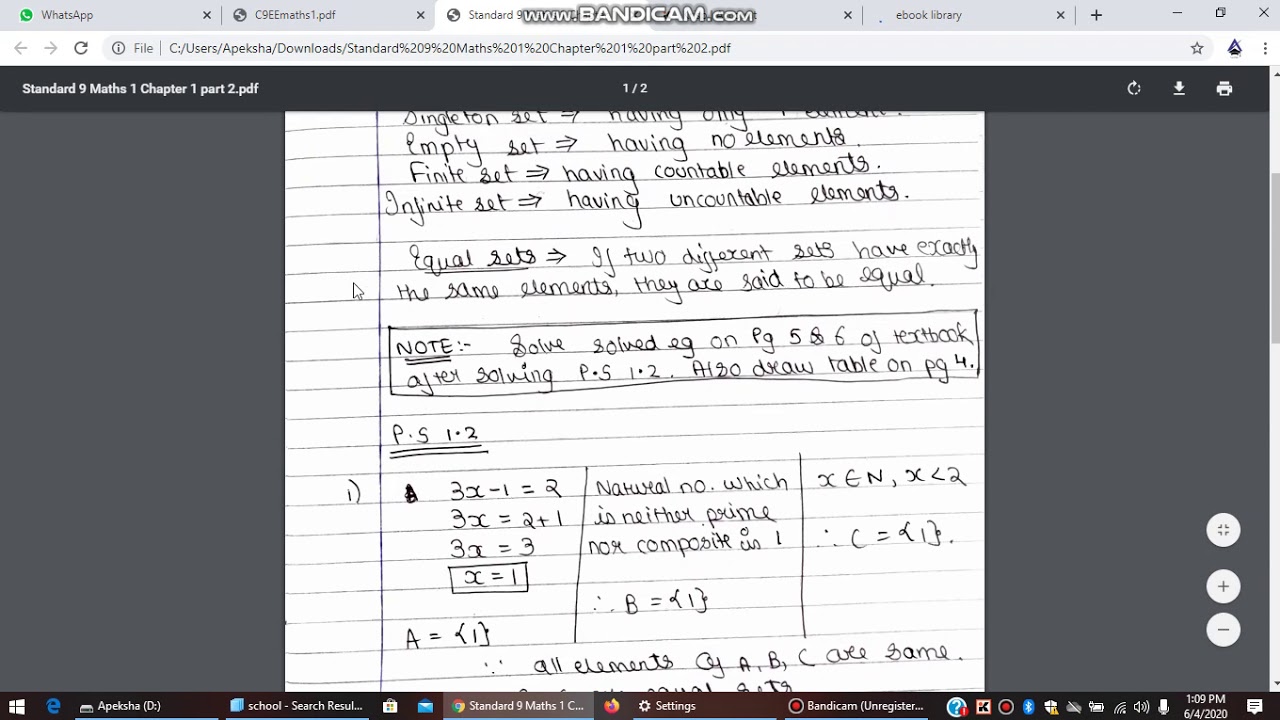 WhatsApp
C9EEmaths1.pdf
Standard 9
www.BANDICAM.com
ebook library
File | C:/Users/Apeksha/Downloads/Standard%209%20Maths%201%20Chapter%201%20part%202.pdf
Standard 9 Maths 1 Chapter 1 part 2.pdf
1 / 2
Singleton set ⇒ having only 1 element.
Empty set ⇒ having no elements.
Finite set ⇒ having countable elements.
Infinite set ⇒ having uncountable elements.
Equal sets ⇒ If two different sets have exactly
the same elements, they are said to be equal.
NOTE:- Solve solved eg on Pg 5 & 6 of textbook
after solving P.S 1.2. Also draw table on pg 4.
P.S 1.2
i) 3x-1 = 2
3x = 2+1
3x = 3
x = 1
A = {1}
Natural no. which
is neither prime
nor composite is 1
∴ B = {1}
x ∈ N, x < 2
∴ C = {1}.
∵ all elements of A, B, C are same.
equal sets
Apeksha (D:)
9th ssc1 - Search Resul...
Standard 9 Maths 1 C...
Settings
Bandicam (Unregister...
1:09 PM
6/4/2020